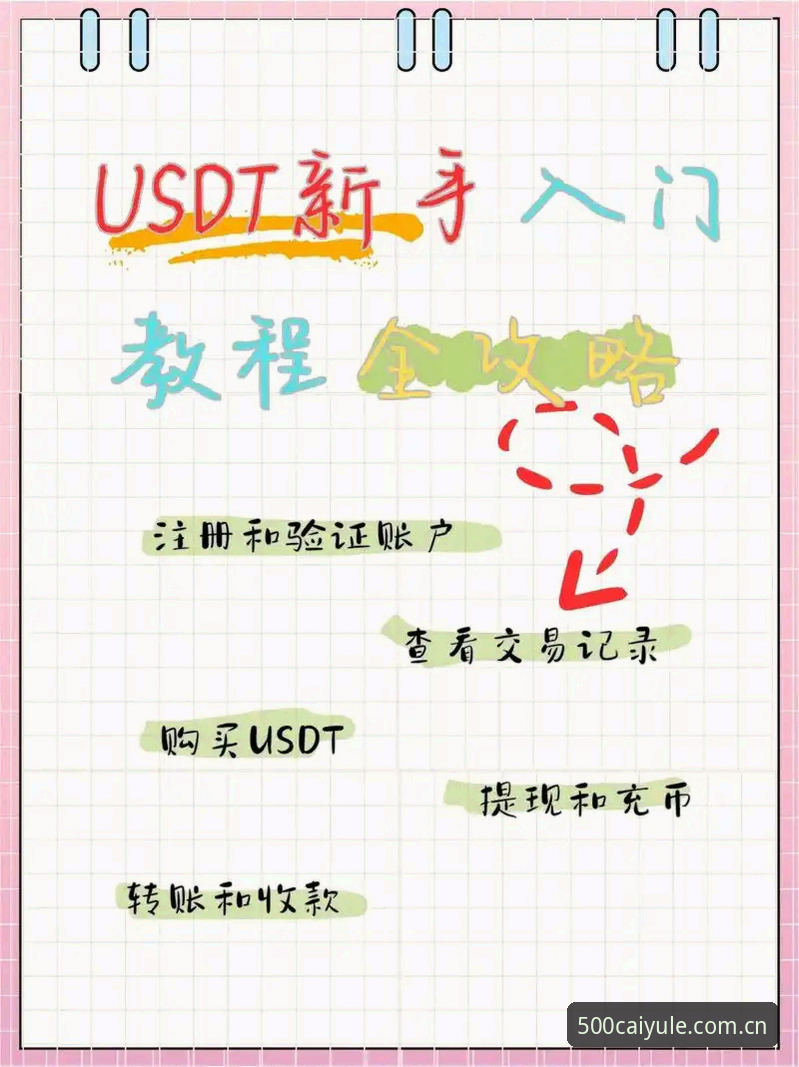 USDT新手入门
教程全攻略
注册和验证账户
查看交易记录
购买USDT
提现和充币
转账和收款
500caiyule.com.cn